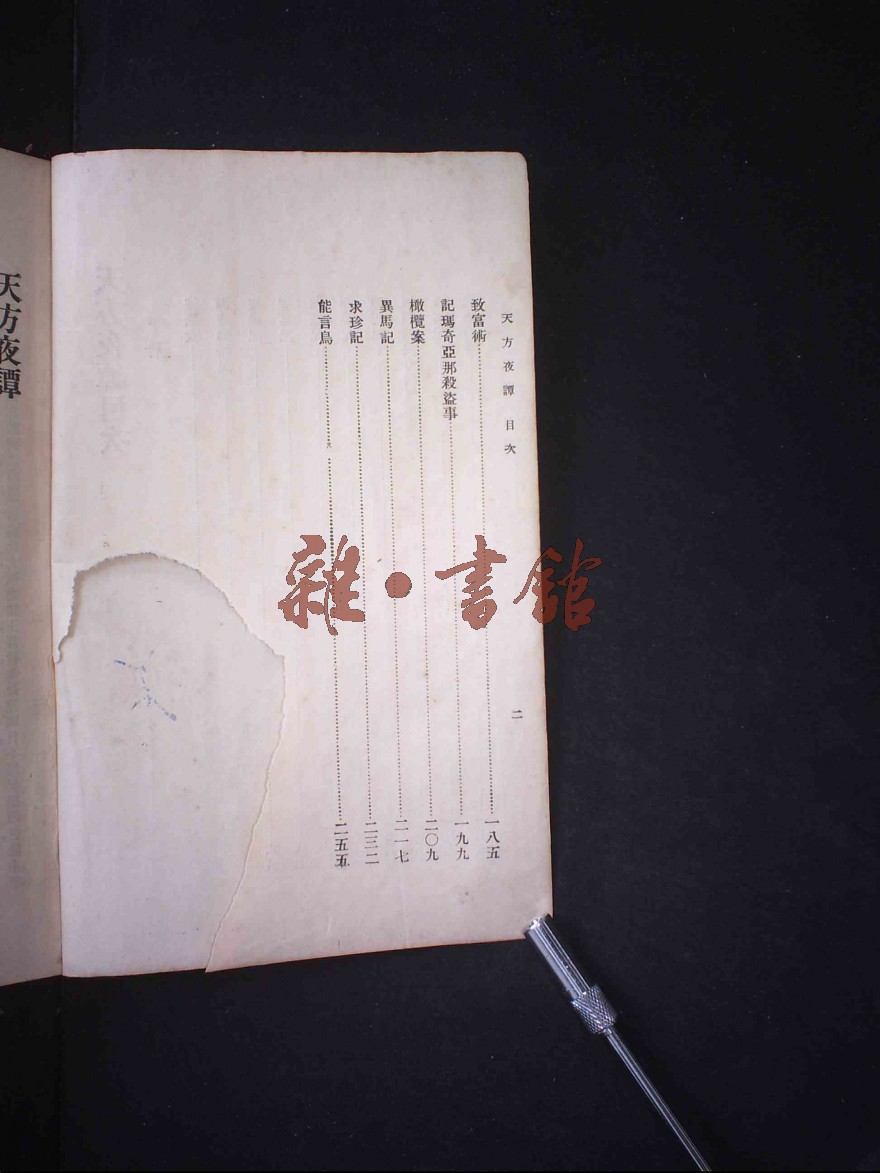 天方夜譚 目次
二
致富術 一八五
記瑪奇亞那殺盜事 一九九
橄欖案 二〇九
異馬記 二一七
求珍記 二三二
能言鳥 二五五
天方夜譚
雜•書館